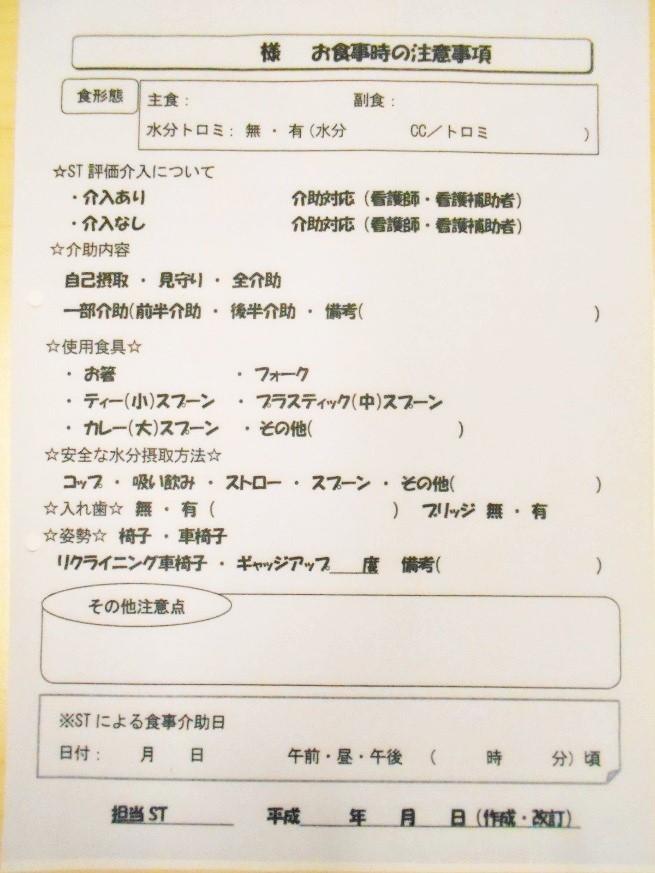 様　お食事時の注意事項
食形態
主食：　副食：
水分トロミ：無・有（水分　CC／トロミ　）
☆ST評価介入について
・介入あり　介助対応（看護師・看護補助者）
・介入なし　介助対応（看護師・看護補助者）
☆介助内容
自己摂取・見守り・全介助
一部介助(前半介助・後半介助・備考(　)
☆使用食具☆
・お箸　・フォーク
・ティー(小)スプーン　・プラスティック(中)スプーン
・カレー(大)スプーン　・その他(　)
☆安全な水分摂取方法☆
コップ・吸い飲み・ストロー・スプーン・その他(　)
☆入れ歯☆　無・有（　）　ブリッジ　無・有
☆姿勢☆　椅子・車椅子
リクライニング車椅子・ギャッジアップ___度　備考(　)
その他注意点
※STによる食事介助日
日付：　月　日　午前・昼・午後　（　時　分）頃
担当ST______　平成____年　月　日（作成・改訂）